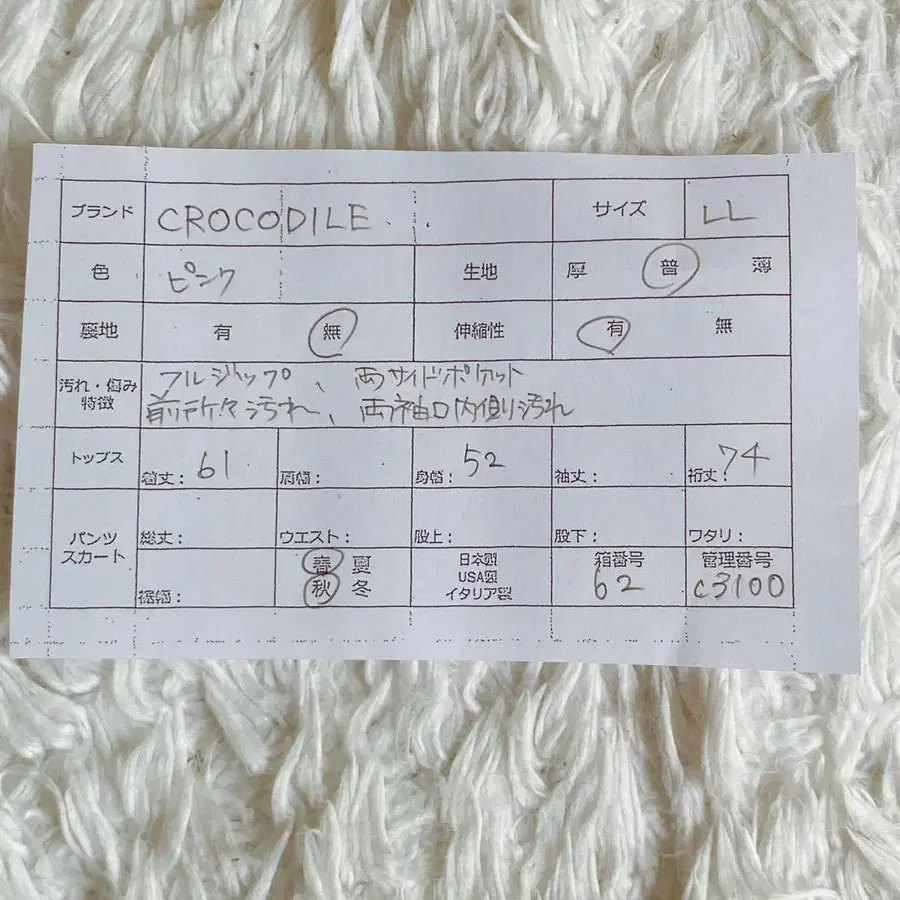 ブランド CROCODILE サイズ LL
色 ピンク 生地 厚 普 薄
裏地 有 無 伸縮性 有 無
汚れ・傷み 特徴 フルジップ、両サイドポケット
前所々汚れ、両袖口内側汚れ
トップス 着丈: 61 肩幅: 身幅: 52 袖丈: 裄丈: 74
パンツ スカート 総丈: ウエスト: 股上: 股下: ワタリ:
裾幅: 春 夏 日本製 箱番号 管理番号
秋 冬 USA製 62 C3100
イタリア製